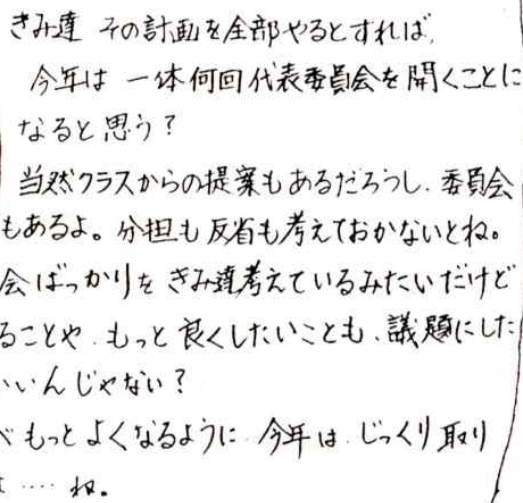 きみ達 その計画を全部やるとすれば、
今年は 一体何回代表委員会を開くことに
なると思う?
当然クラスからの提案もあるだろうし、委員会
もあるよ。分担も反省も考えておかないとね。
会ばっかりを きみ達考えているみたいだけど
ることや、もっと良くしたいことも、議題にした
いいんじゃない?
もっとよくなるように、今年は、じっくり取り
‥‥ね。